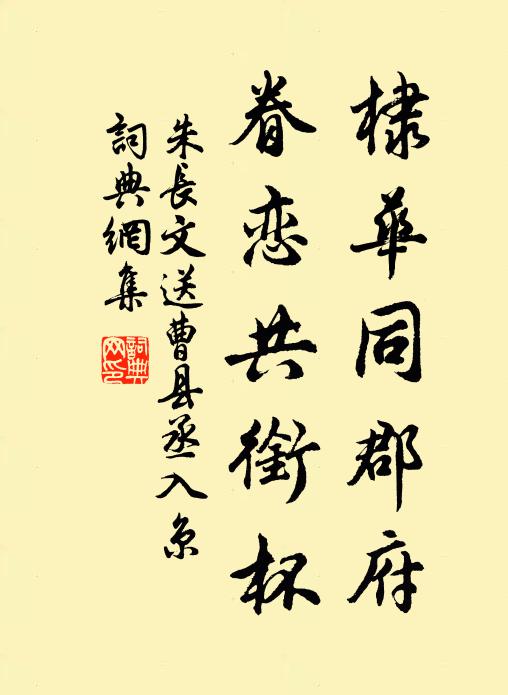 棣華同郡府
眷恋共銜杯
朱長文送曹县丞入京
詞典網集
詞典網印